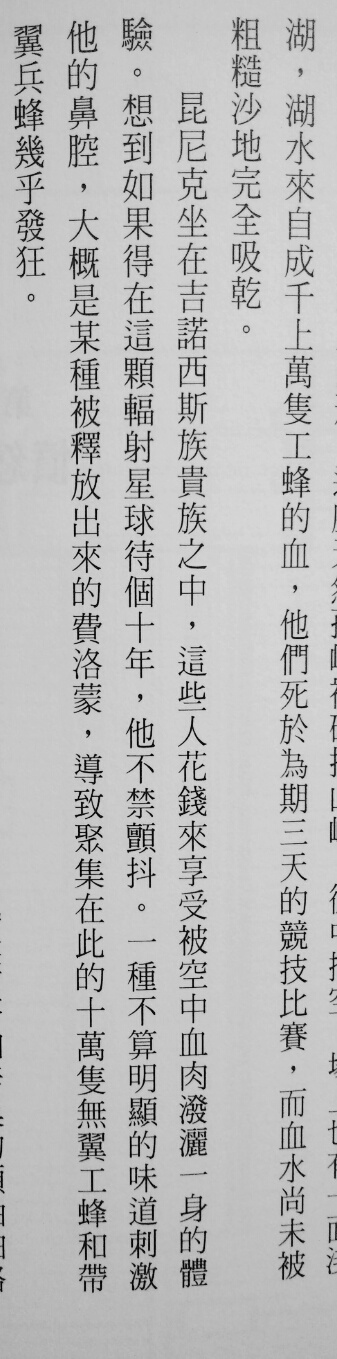 湖,湖水來自成千上萬隻工蜂的血,他們死於為期三天的競技比賽,而血水尚未被
粗糙沙地完全吸乾。
昆尼克坐在吉諾西斯族貴族之中,這些人花錢來享受被空中血肉潑灑一身的體
驗。想到如果得在這顆輻射星球待個十年,他不禁顫抖。一種不算明顯的味道刺激
他的鼻腔,大概是某種被釋放出來的費洛蒙,導致聚集在此的十萬隻無翼工蜂和帶
翼兵蜂幾乎發狂。